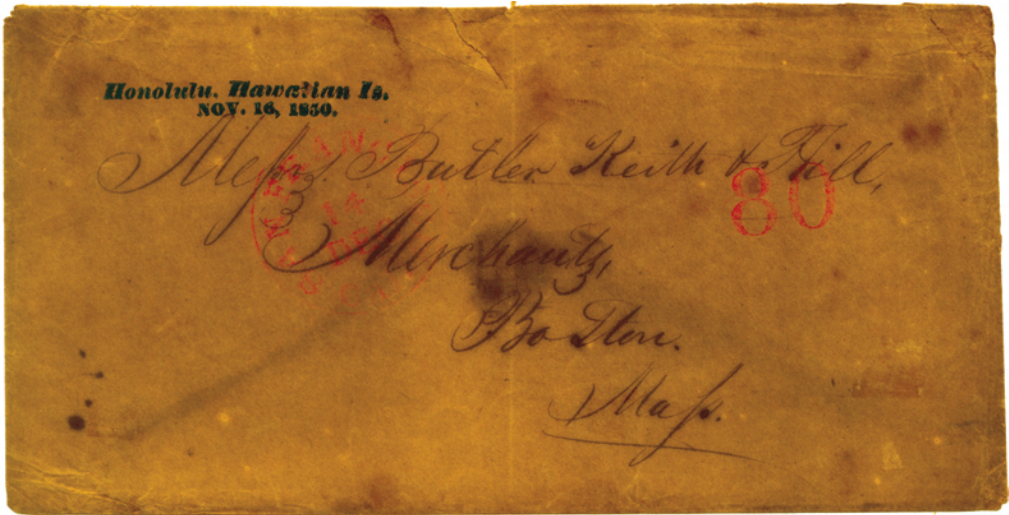 Honolulu. Hawaiian Is.
NOV. 16, 1850.
Messrs. Butler Keith & Hill,
80
14
DEC
Merchants,
Boston.
Mass.